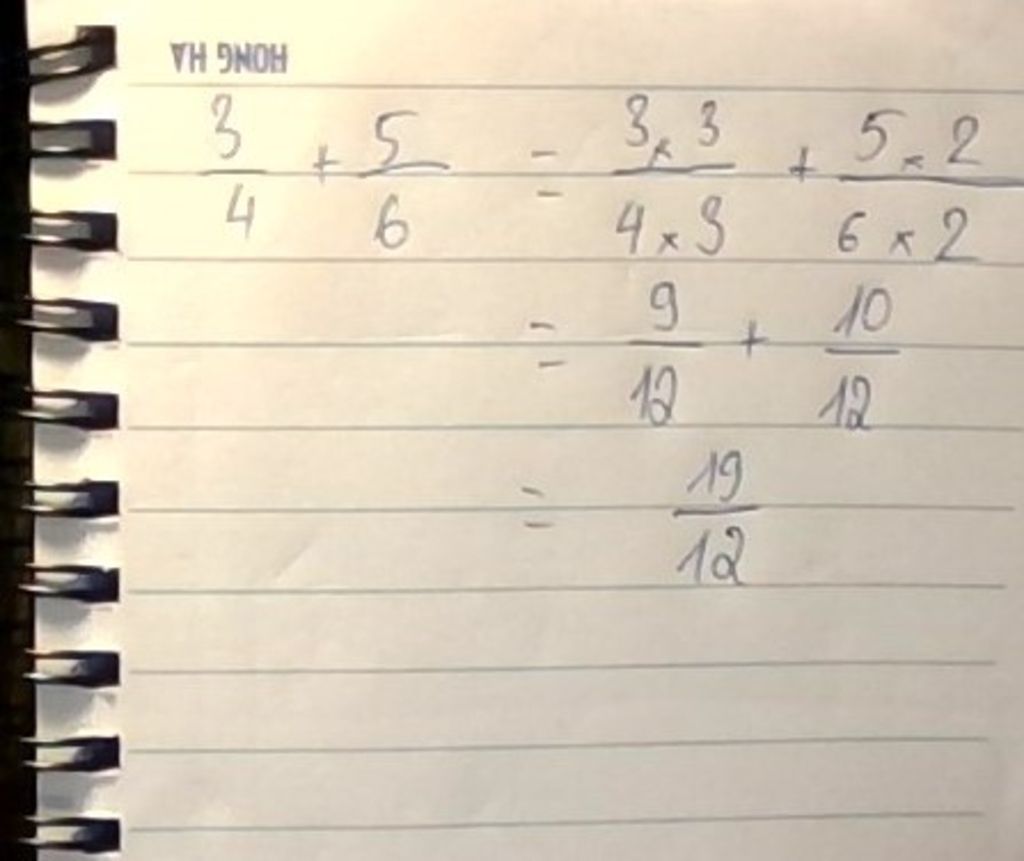 HONG HA
3/4 + 5/6 = 3 × 3 / 4 × 3 + 5 × 2 / 6 × 2
= 9/12 + 10/12
= 19/12